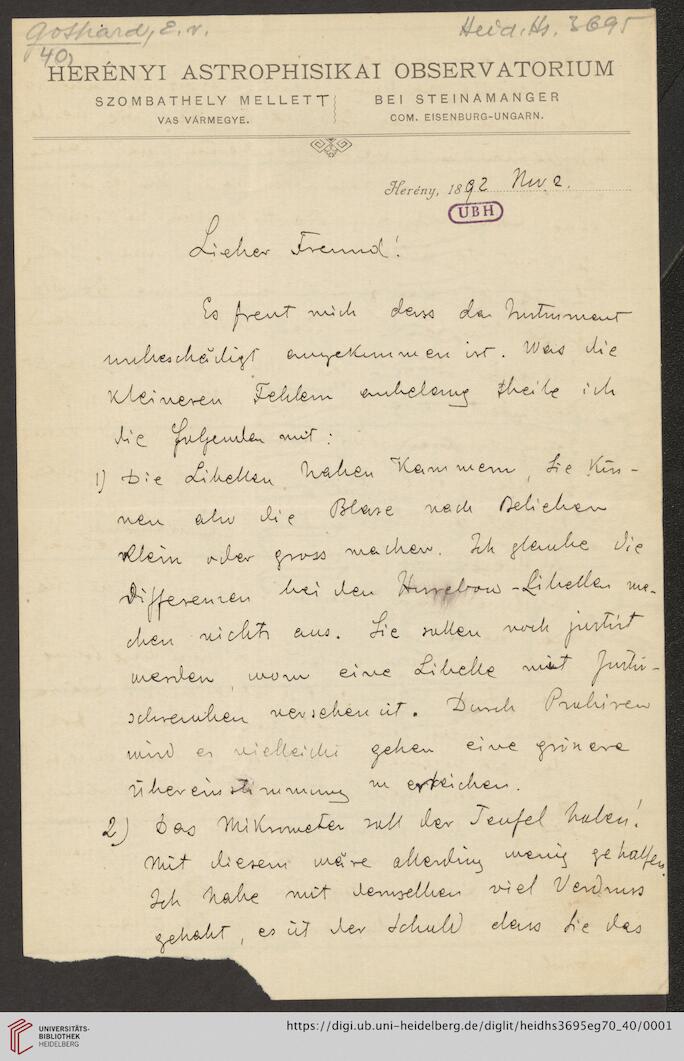 Gothard, E. v.
Heid. Hs. 3695
40,
HERÉNYI ASTROPHISIKAI OBSERVATORIUM
SZOMBATHELY MELLETT
BEI STEINAMANGER
VAS VÁRMEGYE.
COM. EISENBURG-UNGARN.
Herény, 1892 Nov. 2.
UBH
Lieber Freund!
Es freut mich dass das Instrument
unbeschädigt angekommen ist. Was die
kleineren Fehlern anbelang theile ich
die folgenden mit:
1) Die Libellen haben Kammern, Sie kön-
nen also die Blase nach Belieben
klein oder gross machen. Ich glaube die
Differenzen bei den Horrebow-Libellen ma-
chen nichts aus. Sie sollen noch justirt
werden, wozu eine Libelle mit Justir-
schrauben versehen ist. Durch Probiren
wird es vielleicht gehen eine grössere
Übereinstimmung zu erreichen.
2) Das Mikrometer soll der Teufel haben!
Mit diesem wäre allerding wenig geholfen.
Ich habe mit demselben viel Verdruss
gehabt, es ist der Schuld dass Sie das
UNIVERSITÄTS-
BIBLIOTHEK
HEIDELBERG
https://digi.ub.uni-heidelberg.de/diglit/heidhs3695eg70_40/0001